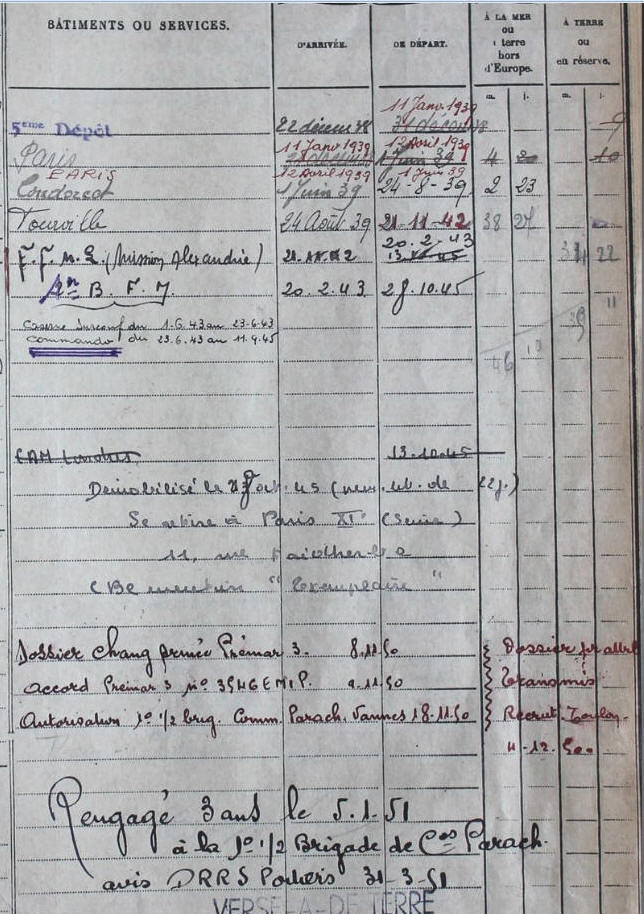 BÂTIMENTS OU SERVICES.
D'ARRIVÉE.
DE DÉPART.
À LA MER
ou
à terre
hors
d'Europe.
À TERRE
ou
en réserve.
m. j. m. j.
11 Janv 1939
5ème Dépôt 22 décem 38 9
11 Janv 1939 12 Avril 1939
Paris 1 Juin 39 4 20 10
PARIS 12 Avril 1939 1 Juin 39
Condorcet 1 Juin 39 24-8-39 2 23
Tourville 24 Août 39 21-11-42 38 27
20.2.43
F.F.N.L (Mission Alexandrie) 22
1er B.F.M. 20.2.43 28.10.45
Caserne Surcouf du 1-6.43 au 23-6.43
Commando du 23.6.43 au 11.9.45
46
CAM Londres 13.10.45
Démobilisé le oct. 45 de 22j.)
Se retire à Paris XIe (Seine)
11, rue Faidherbe
CBC mention "Exemplaire"
Dossier chang armée Prémar 3. 8.11.50 Dossier
Accord Prémar 3 no 3546 EM1P. 9.11.50 Transmis
Autorisation 1o 1/2 brig. Comm. Parach. Vannes 18.11.50 Recrut. Toulon
4-12.50
Rengagé 3 ans le 5.1.51
à la 1o 1/2 Brigade de Cos Parach.
avis DRRS Poitiers 31-3-51
VERSE A-DE TERRE